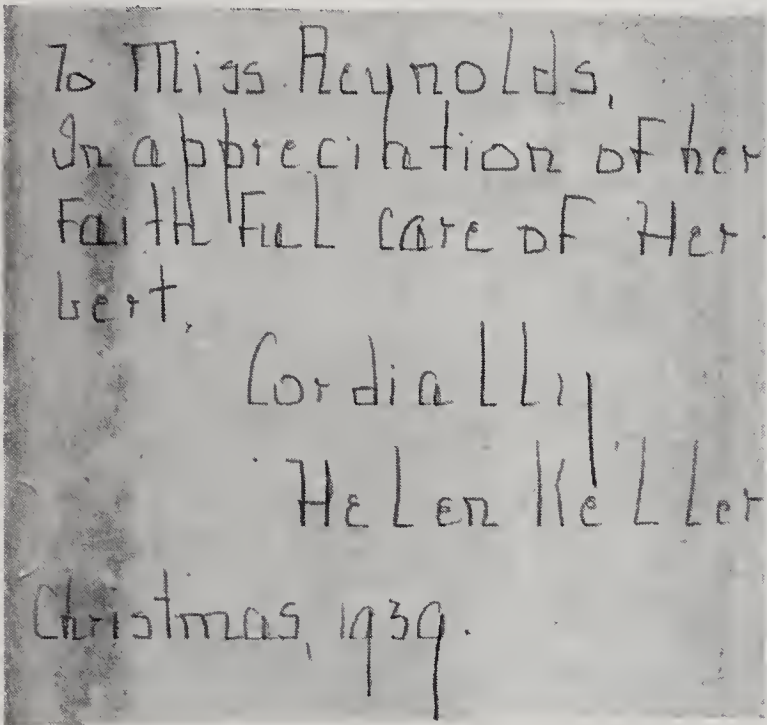 To Miss Reynolds,
In apprecihtion of her
Faithful care of Her
bert.
Cordially
Helen Keller
Christmas, 1939.